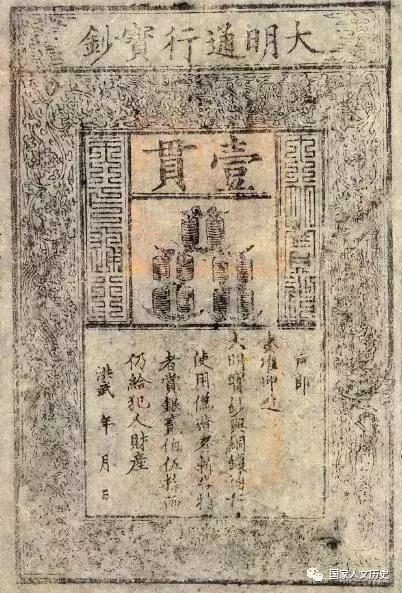 大明通行寶鈔
壹貫
戶
奏准印造
大明寶鈔與銅錢通行
使用偽造者斬告捕
者賞銀伯伍拾兩
仍給犯人財産
洪武 年 月 日
国家人文历史